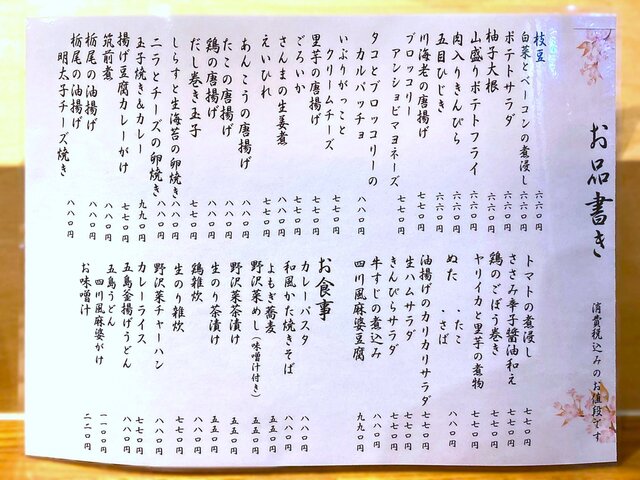 お品書き
消費税込みのお値段です
枝豆 六六〇円
白菜とベーコンの煮浸し 六六〇円
ポテトサラダ 六六〇円
柚子大根 六六〇円
山盛りポテトフライ 六六〇円
肉入りきんぴら 六六〇円
五目ひじき 六六〇円
川海老の唐揚げ 七七〇円
ブロッコリー
アンショビマヨネーズ 七七〇円
タコとブロッコリーの
カルパッチョ 八八〇円
いぶりがっこと
クリームチーズ 七七〇円
里芋の唐揚げ 七七〇円
ごろいか 七七〇円
さんまの生姜煮 八八〇円
えいひれ 七七〇円
あんこうの唐揚げ 八八〇円
たこの唐揚げ 八八〇円
鶏の唐揚げ 八八〇円
だし巻き玉子 七七〇円
しらすと生海苔の卵焼き 八八〇円
ニラとチーズの卵焼き 八八〇円
玉子焼き&カレー 九九〇円
揚げ豆腐カレーがけ 七七〇円
筑前煮 八八〇円
栃尾の油揚げ 八八〇円
栃尾の油揚げ
明太子チーズ焼き 八八〇円
トマトの煮浸し 七七〇円
ささみ辛子醤油和え 七七〇円
鶏のごぼう巻き 七七〇円
ヤリイカと里芋の煮物 七七〇円
ぬた ・たこ
・さば 八八〇円
油揚げのカリカリサラダ 七七〇円
生ハムサラダ 七七〇円
きんぴらサラダ 七七〇円
牛すじの煮込み 八八〇円
四川風麻婆豆腐 九九〇円
お食事
カレーパスタ 八八〇円
和風かた焼きそば 八八〇円
よもぎ蕎麦 七七〇円
野沢菜めし(味噌汁付き) 五五〇円
野沢菜茶漬け 五五〇円
生のり茶漬け 五五〇円
鶏雑炊 八八〇円
生のり雑炊 七七〇円
野沢菜チャーハン 八八〇円
カレーライス 七七〇円
五島釜揚げうどん 八八〇円
五島うどん
四川風麻婆がけ 一一〇〇円
お味噌汁 二二〇円